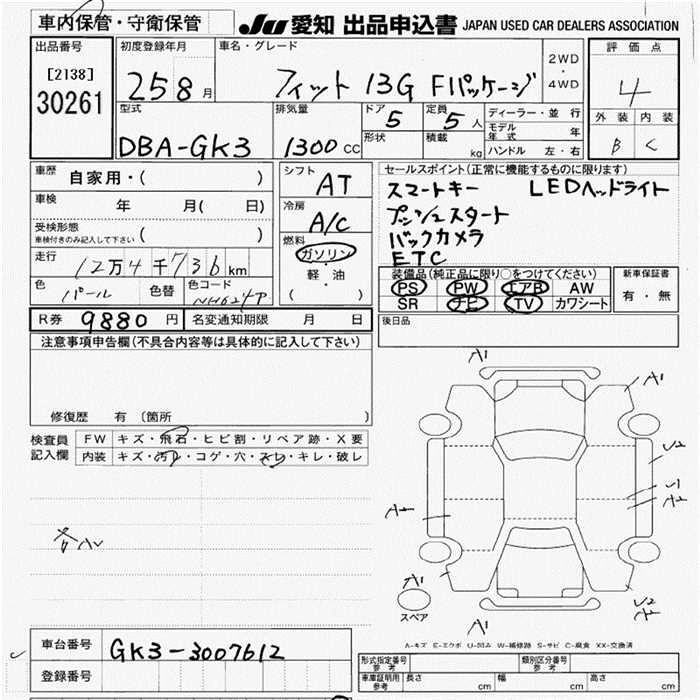 車内保管・守衛保管
JU 愛知 出品申込書 JAPAN USED CAR DEALERS ASSOCIATION
出品番号
[2138]
30261
初度登録年月
25 8 月
車名・グレード
フィット 13G Fパッケージ
2WD
・
4WD
評価点
4
外装 内装
B C
型式
DBA-GK3
排気量
1300 CC
ドア
5
形状
定員
5 人
積載
kg
ディーラー・並行
モデル年式 年
ハンドル 左・右
車歴
自家用・( )
車検
年 月( 日)
受検形態
車検付きのみ記入して下さい ( )
走行
12万4千736km
色
パール
色替
色コード
NH624P
シフト
AT
冷房
A/C
燃料
ガソリン
・
軽・油
( )
セールスポイント(正常に機能するものに限ります)
スマートキー LEDヘッドライト
プッシュスタート
バックカメラ
ETC
装備品(純正品に限り○をつけてください)
PS PW エアB AW
SR ナビ TV カワシート
新車保証書
有・無
R券 9880 円
名変通知期限 月 日
後日品
注意事項申告欄(不具合内容等は具体的に記入して下さい)
修復歴 有 (箇所 )
検査員記入欄
FW キズ・飛石・ヒビ割・リペア跡・X要
内装 キズ・汚レ・コゲ・穴・スレ・キレ・破レ
A1
A1
U2
U1
A2
A2
A1
スペア
U2
A2
A1
A-キズ E-エクボ U-凹み W-補修跡 S-サビ C-腐食 XX-交換済
車台番号
GK3-3007612
登録番号
形式指定番号
参考
類別区分番号
参考
車庫証明用
参考
長さ cm 幅 cm 高さ cm